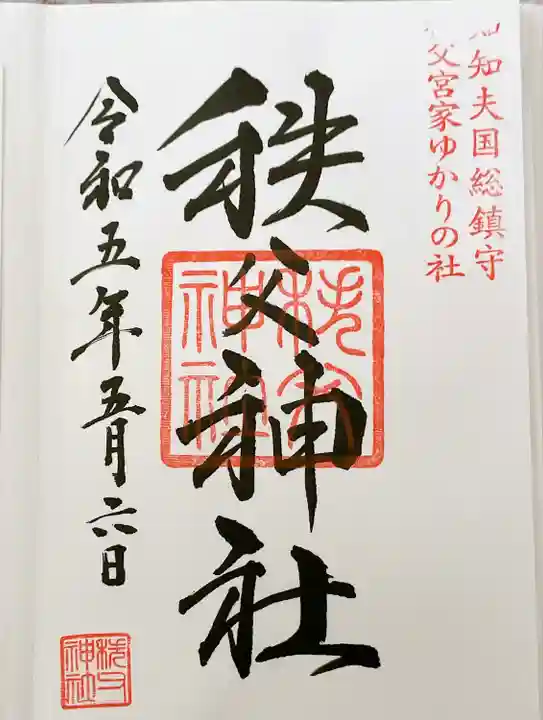 知知夫国総鎮守
秩父宮家ゆかりの社
秩父神社
秩父神社
令和五年五月六日
秩父神社